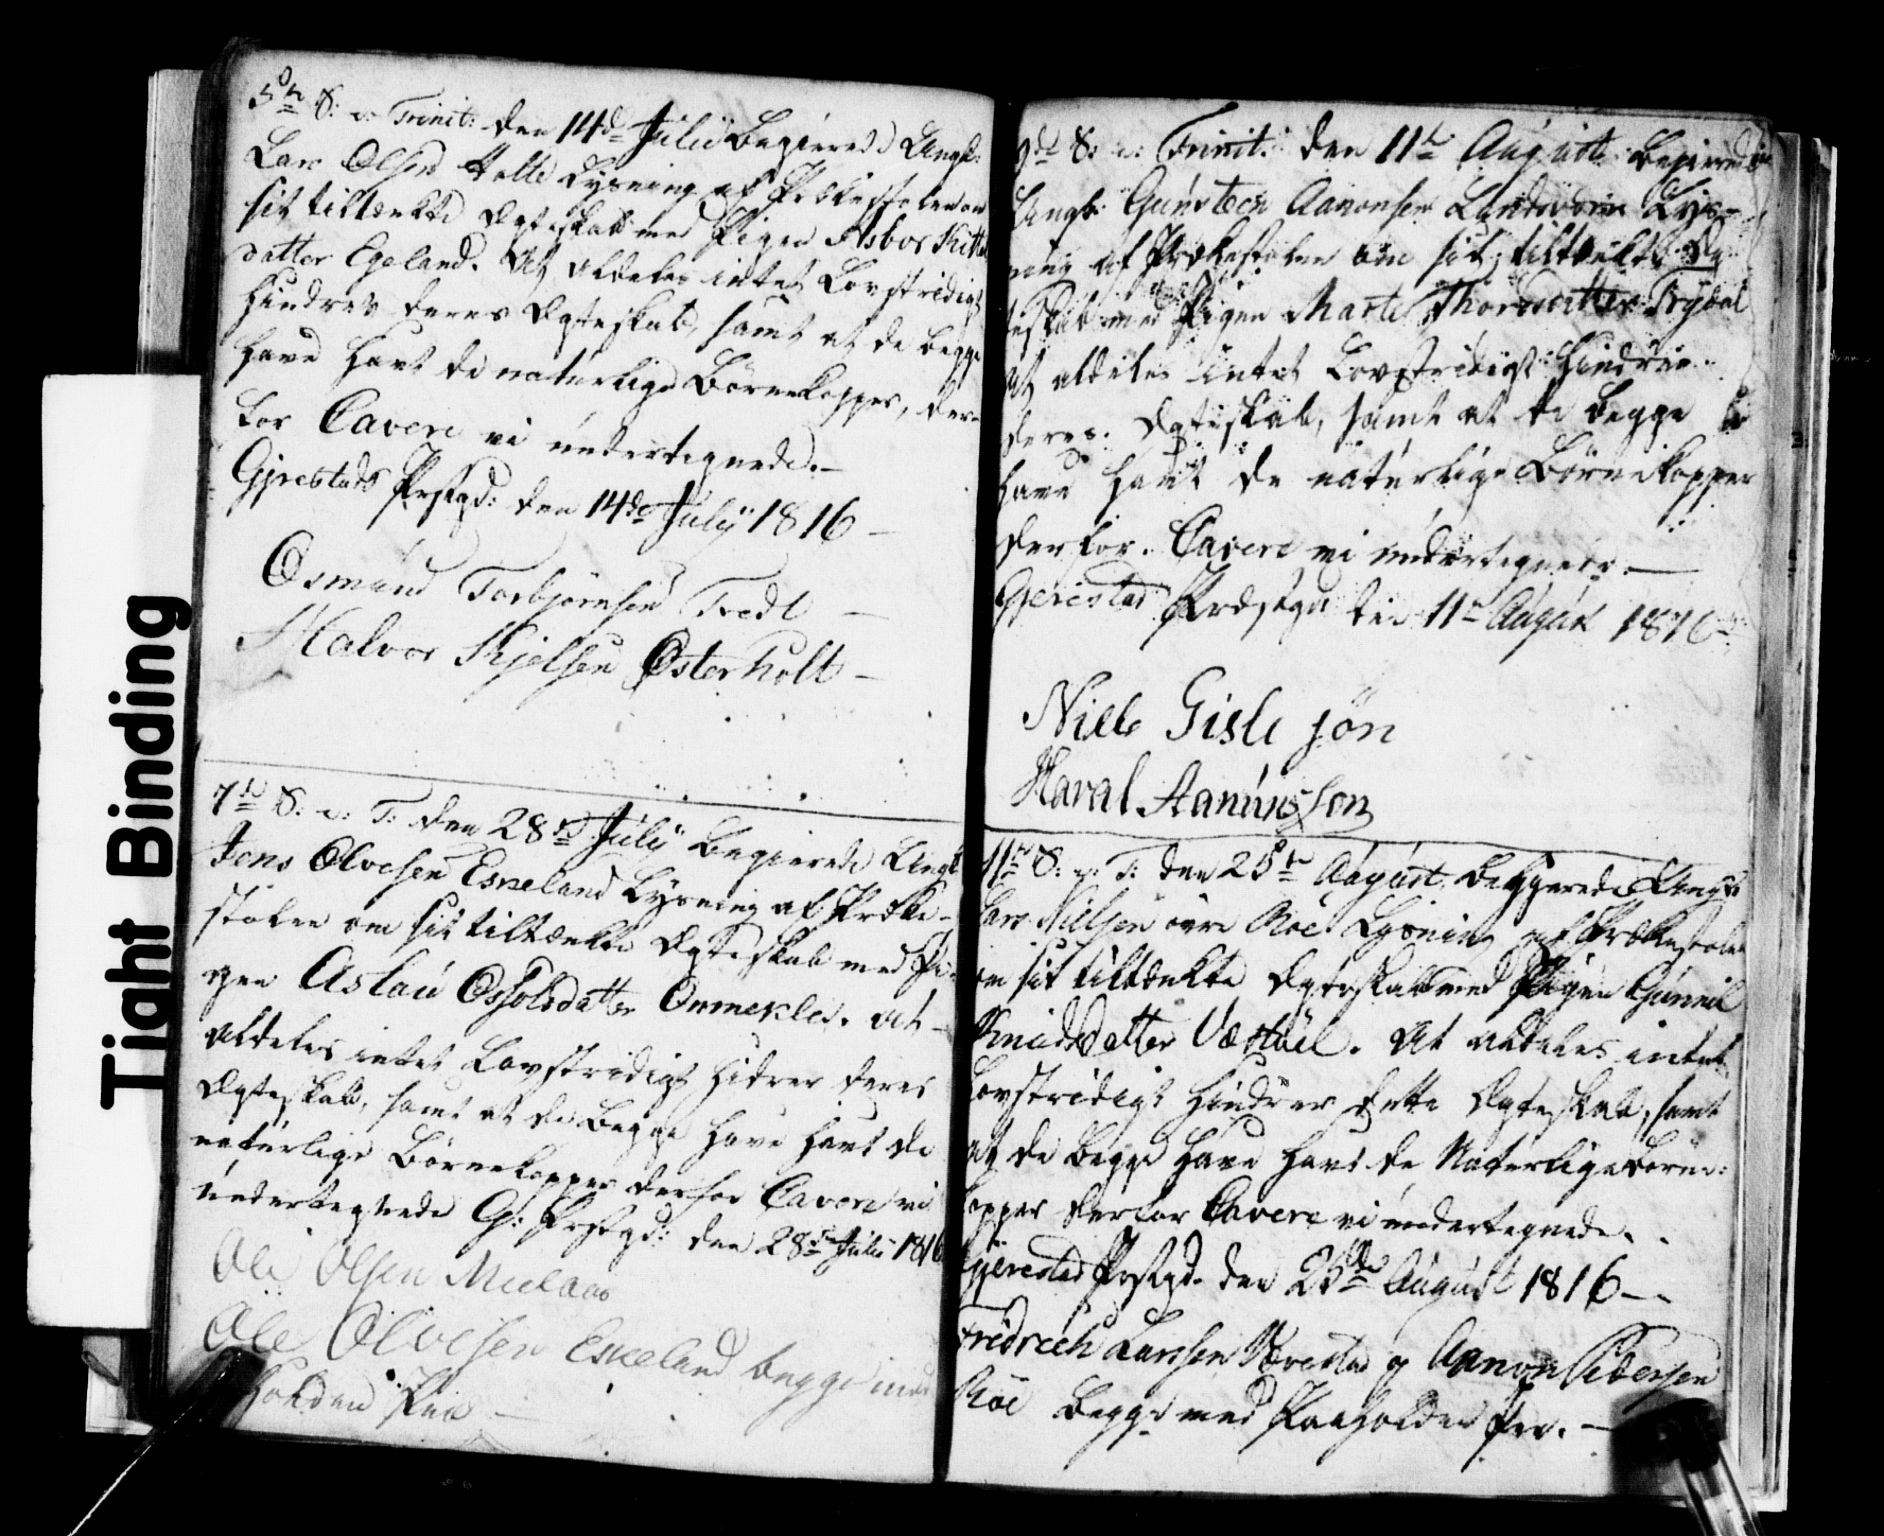 5te S: e: Trinit: den 14de Julii Begierede Ungk:
Lars Olsen Holte Lysning af Prækestolen om
sit tiltænkte Ægteskab med Pigen Asbor
datter Egeland. At aldeles intet Lovstridigt
hindrer deres Ægteskab, samt at de begge
have havt de naturlige Børnekopper, der-
for Cavere vi undertegnede.-
Gjrestads Præstgd: den 14de Julij 1816 -
Osmund Torbjørnsen Tredt -
Halvor Kjelsen Østerholt -
7de S: e: T: den 28de Julij Begierede Ungk
Jens Olvesen Eskeland Lysning af Præke-
stolen om sit tiltænkte Ægteskab med Pi-
gen Aslau Osolsdatter Ommekles. at
aldeles intet Lovstridigt hidrer deres
Ægteskab, samt at de Begge have havt de
naturlige Børnekopper derfor Cavere vi
undertegnede G: Prstgd: den 28de Julii 1816
Ole Olsen Mielaas
Ole Olvesen Eskeland begge med
holden Pen -
9de S: e: Trinit: den 11te August Begierede
Ungk: Gunsteen Aanonsen Lyds-
ning af Prækestolen om sit tiltænkte Æg-
teskab med Pigen Marte Thorsdatter Rydal
At aldeles intet Lovstridigt Hindrer
deres Ægteskab, samt at de begge
have havt de naturlige Børnekopper
derfor. Cavere vi undertegnede. -
Gjerestad Præstgd den 11te August 1816
Niels Gisle søn
Haral Aanunssøn
11te S: e: T: den 25de August. Begyerede Ungk
Lars Nillsen øvre Röe Lysning af Prækestolen
om sit tiltænkte Ægteskab med Pigen Gunnil
Knudsdatter Vestøel. At aldeles intet
Lovstridigt Hindrer dette Ægteskab, samt
at de begge have havt de Naturlige Børne:
kopper derfor Cavere vi undertegnede.
Gjerestad Prstgd. den 25de August 1816 -
Fridrech Larssen Vævestad og Aanon Pedersen
Röe Begge med Paaholden Pen. -
Tight Binding